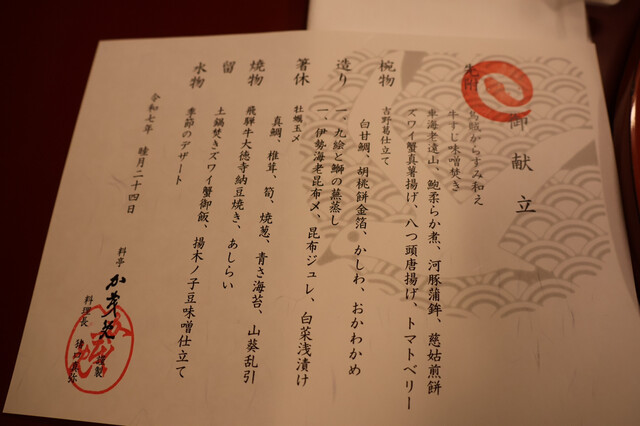 御献立
先附
烏賊からすみ和え
牛すじ味噌焚き
車海老遠山、鮑柔らか煮、河豚蒲鉾、慈姑煎餅
ズワイ蟹真薯揚げ、八つ頭唐揚げ、トマトベリー
椀物
吉野葛仕立て
白甘鯛、胡桃餅金箔、かしわ、おかわかめ
造り
一、九絵と鰤の蒸し
一、伊勢海老昆布〆、昆布ジュレ、白菜浅漬け
箸休
牡蠣玉〆
焼物
真鯛、椎茸、筍、焼葱、青さ海苔、山葵乱引
飛騨牛大徳寺納豆焼き、あしらい
留
土鍋焚きズワイ蟹御飯、揚木ノ子豆味噌仕立て
水物
季節のデザート
令和七年 睦月二十四日
料亭 か茂免 謹製
料理長